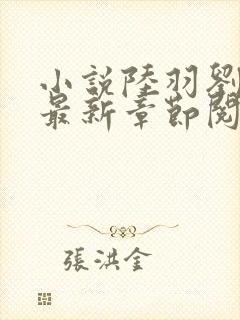 小說陸羽劉
最新章節閱
張洪全